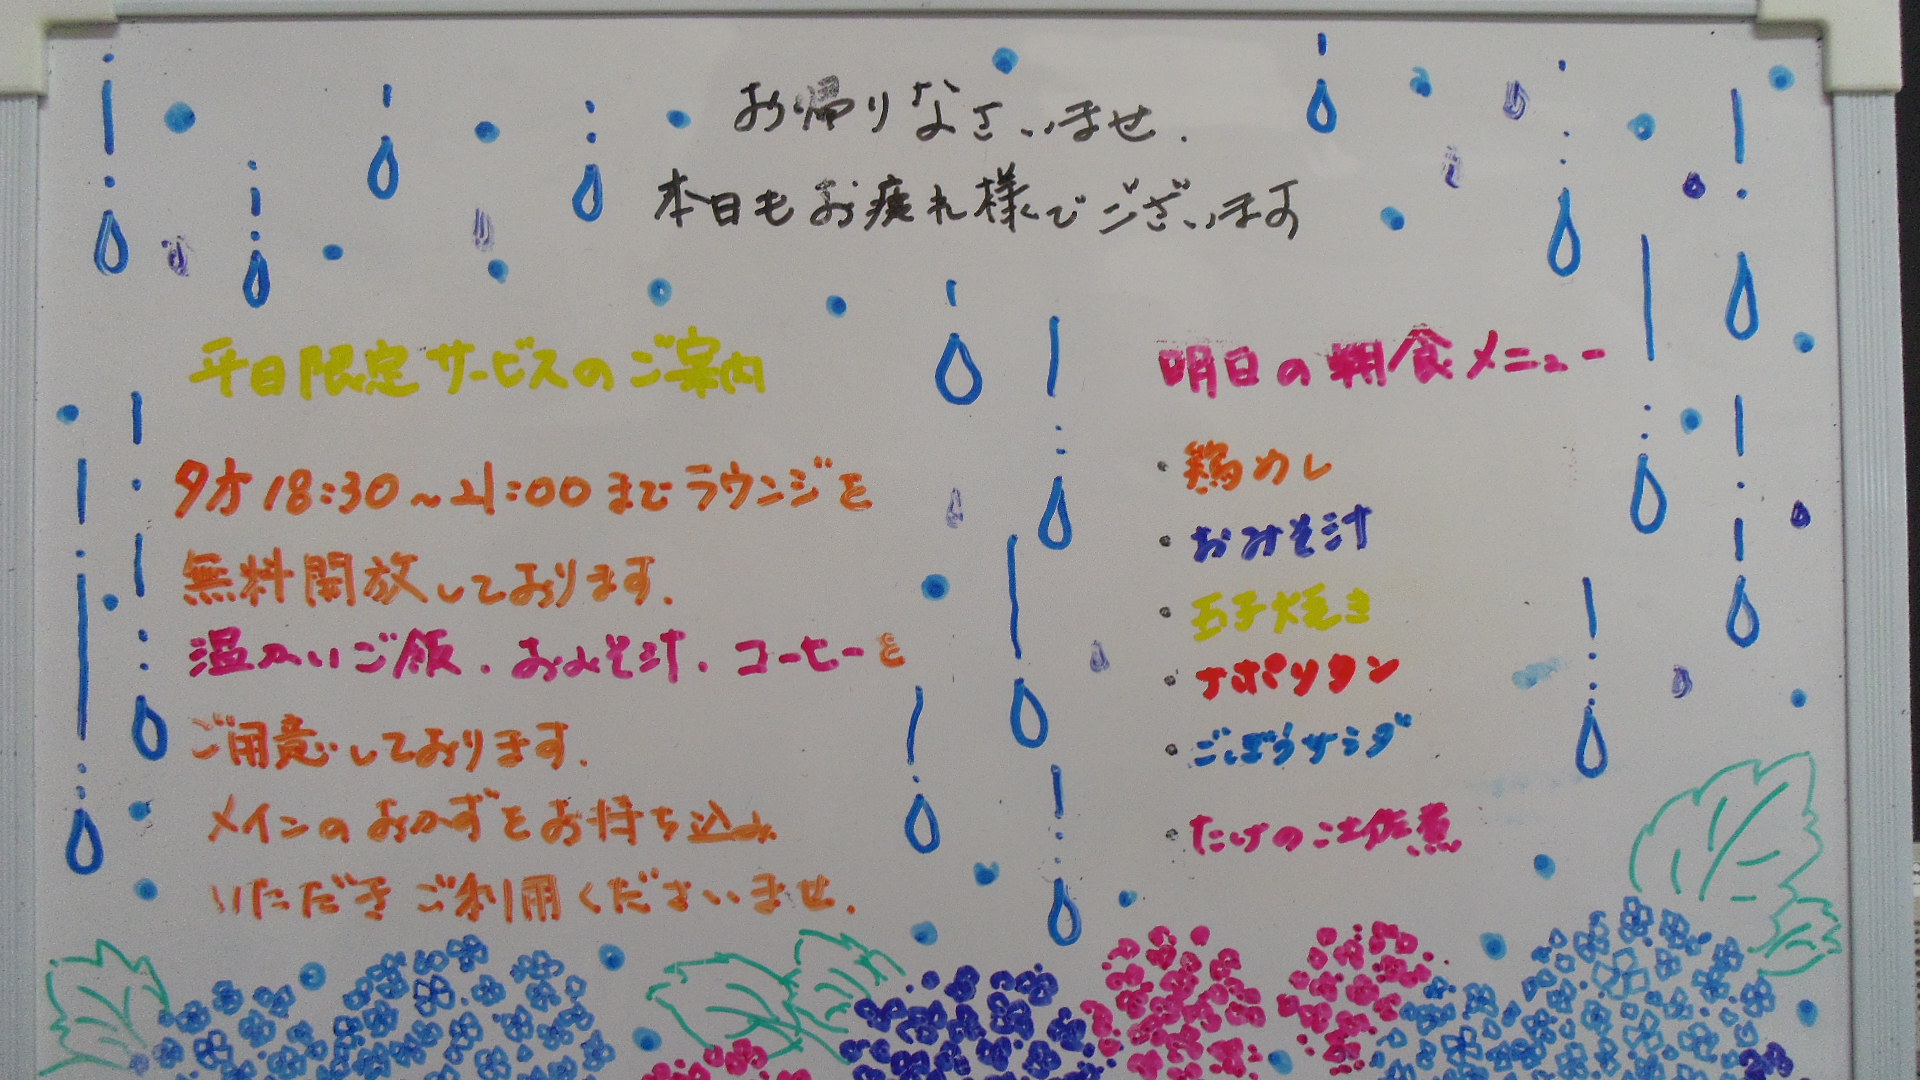 お帰りなさいませ.
本日もお疲れ様でございます
平日限定サービスのご案内
夕方18:30~21:00までラウンジを
無料開放しております.
温かいご飯.おみそ汁.コーヒーを
ご用意しております.
メインのおかずをお持ち込み
いただきご利用くださいませ.
明日の朝食メニュー
・鶏カレー
・おみそ汁
・玉子焼き
・ナポリタン
・ごぼうサラダ
・たけのこ土佐煮